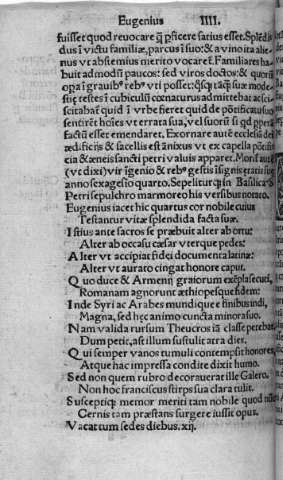 Eugenius IIII.
fuisset quod reuocare q̃ ꝑficere satius esset. Splẽdi
dus ĩ victu familiæ, parcus ĩ suo: & a vino ita alie-
nus vt abstemius merito vocaret̃. Familiares ha-
buit admodũ paucos: sed viros doctos: & quorũ
opa ĩ grauibꝰ rebꝰ vti posset: & q̃sq̃ taq̃ suæ mode-
stiæ testes ĩ cubiculũ cœnaturus admittebat ac sci-
scitabat̃ quid ĩ vrbe fieret quid de põtificatu suo
sentirẽt hoĩes vt errata sua, vel suorũ si qd
factũ esset emendaret. Exornare aũt ecclesiã dei
ædificijs & sacellis est ãnixus vt ex capella põtifi-
cia & æneis sancti petri valuis apparet. Morĩt̃ aũt
(vt dixi) vir ĩgenio & rebꝰ gestis ĩsignis ætatis suæ
anno sexagesio quarto. Sepelitur q̃ in Basilica S.
Petri sepulchro marmoreo his versibus notato.
Eugenius iacet hic quartus cor nobile cuius
Testantur vitæ splendida facta suæ.
Istius ante sacros se præbuit alter ab ortu:
Alter ab occasu cæsar vterque pedes:
Alter vt accipiat fidei documenta latinæ:
Alter vt aurato cingat honore caput.
Quo duce & Armenij graiorum exẽpla secuti,
Romanam agnorunt æthiopesque fidem:
Inde Syri ac Arabes mundique e finibus indi,
Magna, sed hęc animo cuncta minora suo.
Nam valida rursum Theucros iã classe petebat,
Dum petit, ast illum sustulit atra dies.
Qui semper vanos tumuli contempsit honores,
Atque hac impressa condite dixit humo.
Sed non quem rubro decorauerat ille Galero,
Non hoc franciscus stirps sua clara tulit.
Susceptiq; memor meriti tam nobile quod
Cernis tam præstans surgere iussit opus.
Vacat tum sedes diebus. xij.